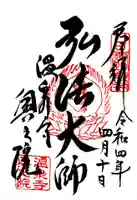 奉拝
令和四年
四月十日
弘法大師
温泉寺
奥之院